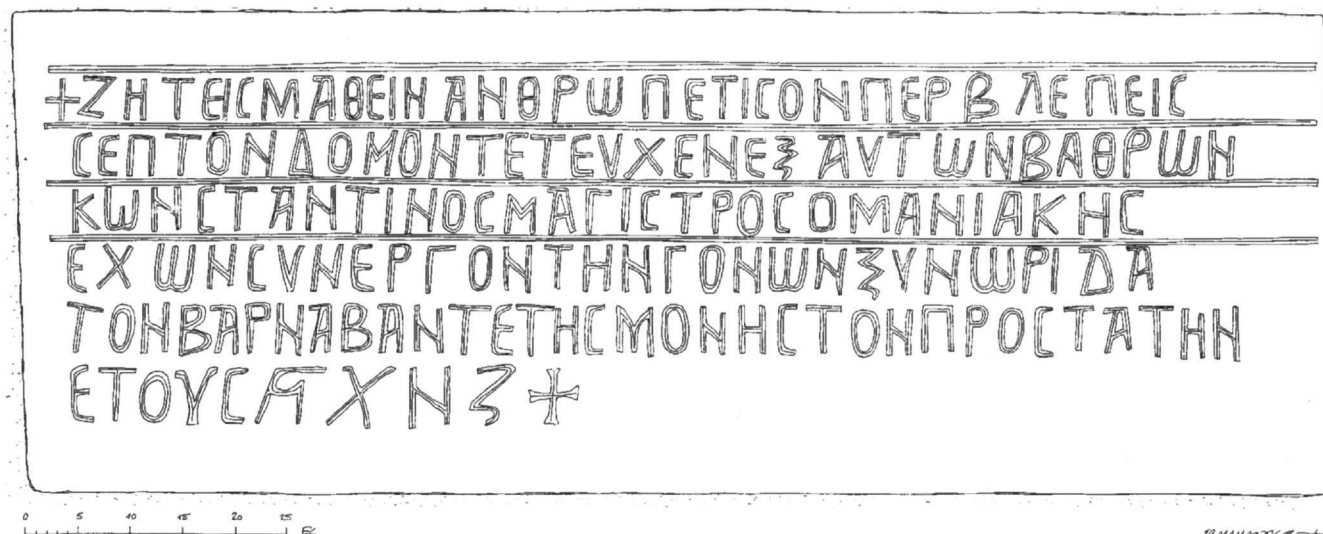 +ΖΗΤΕΙCΜΑΘΕΙΝΑΝΘΡΩΠΕΤΙCΟΝΠΕΡΒΛΕΠΕΙC
CΕΠΤΟΝΔΟΜΟΝΤΕΤΕVΧΕΝΕΞΑVΤΩΝΒΑΘΡΩΝ
ΚΩΝCΤΑΝΤΙΝΟCΜΑΓΙCΤΡΟCΟΜΑΝΙΑΚΗC
ΕΧΩΝCVΝΕΡΓΟΝΤΗΝΓΟΝΩΝΞVΝΩΡΙΔΑ
ΤΟΝΒΑΡΝΑΒΑΝΤΕΤΗCΜΟΝΗCΤΟΝΠΡΟCΤΑΤΗΝ
ΕΤΟΥCϠΧΝΖ+
0 5 10 15 20 25